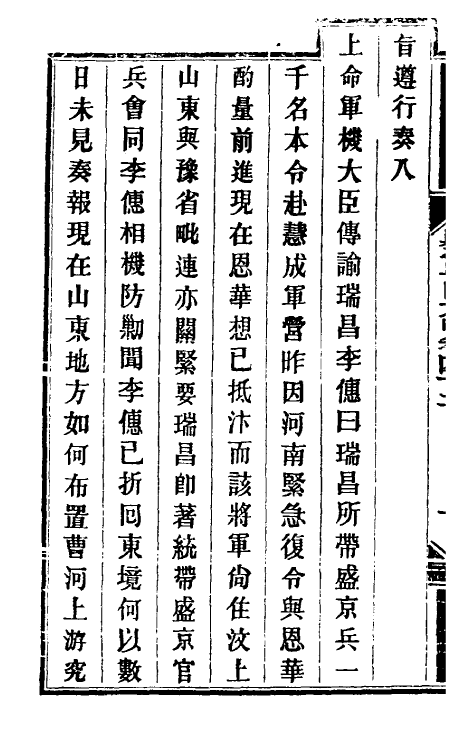 旨遵行奏入
上命軍機大臣傳諭瑞昌李僡曰瑞昌所帶盛京兵一
千名本令赴慧成軍營昨因河南緊急復令與恩華
酌量前進現在恩華想已抵汴而該將軍尙住汶上
山東與豫省毗連亦關緊要瑞昌卽著統帶盛京官
兵會同李僡相機防勦聞李僡已折囘東境何以數
日未見奏報現在山東地方如何布置曹河上游究